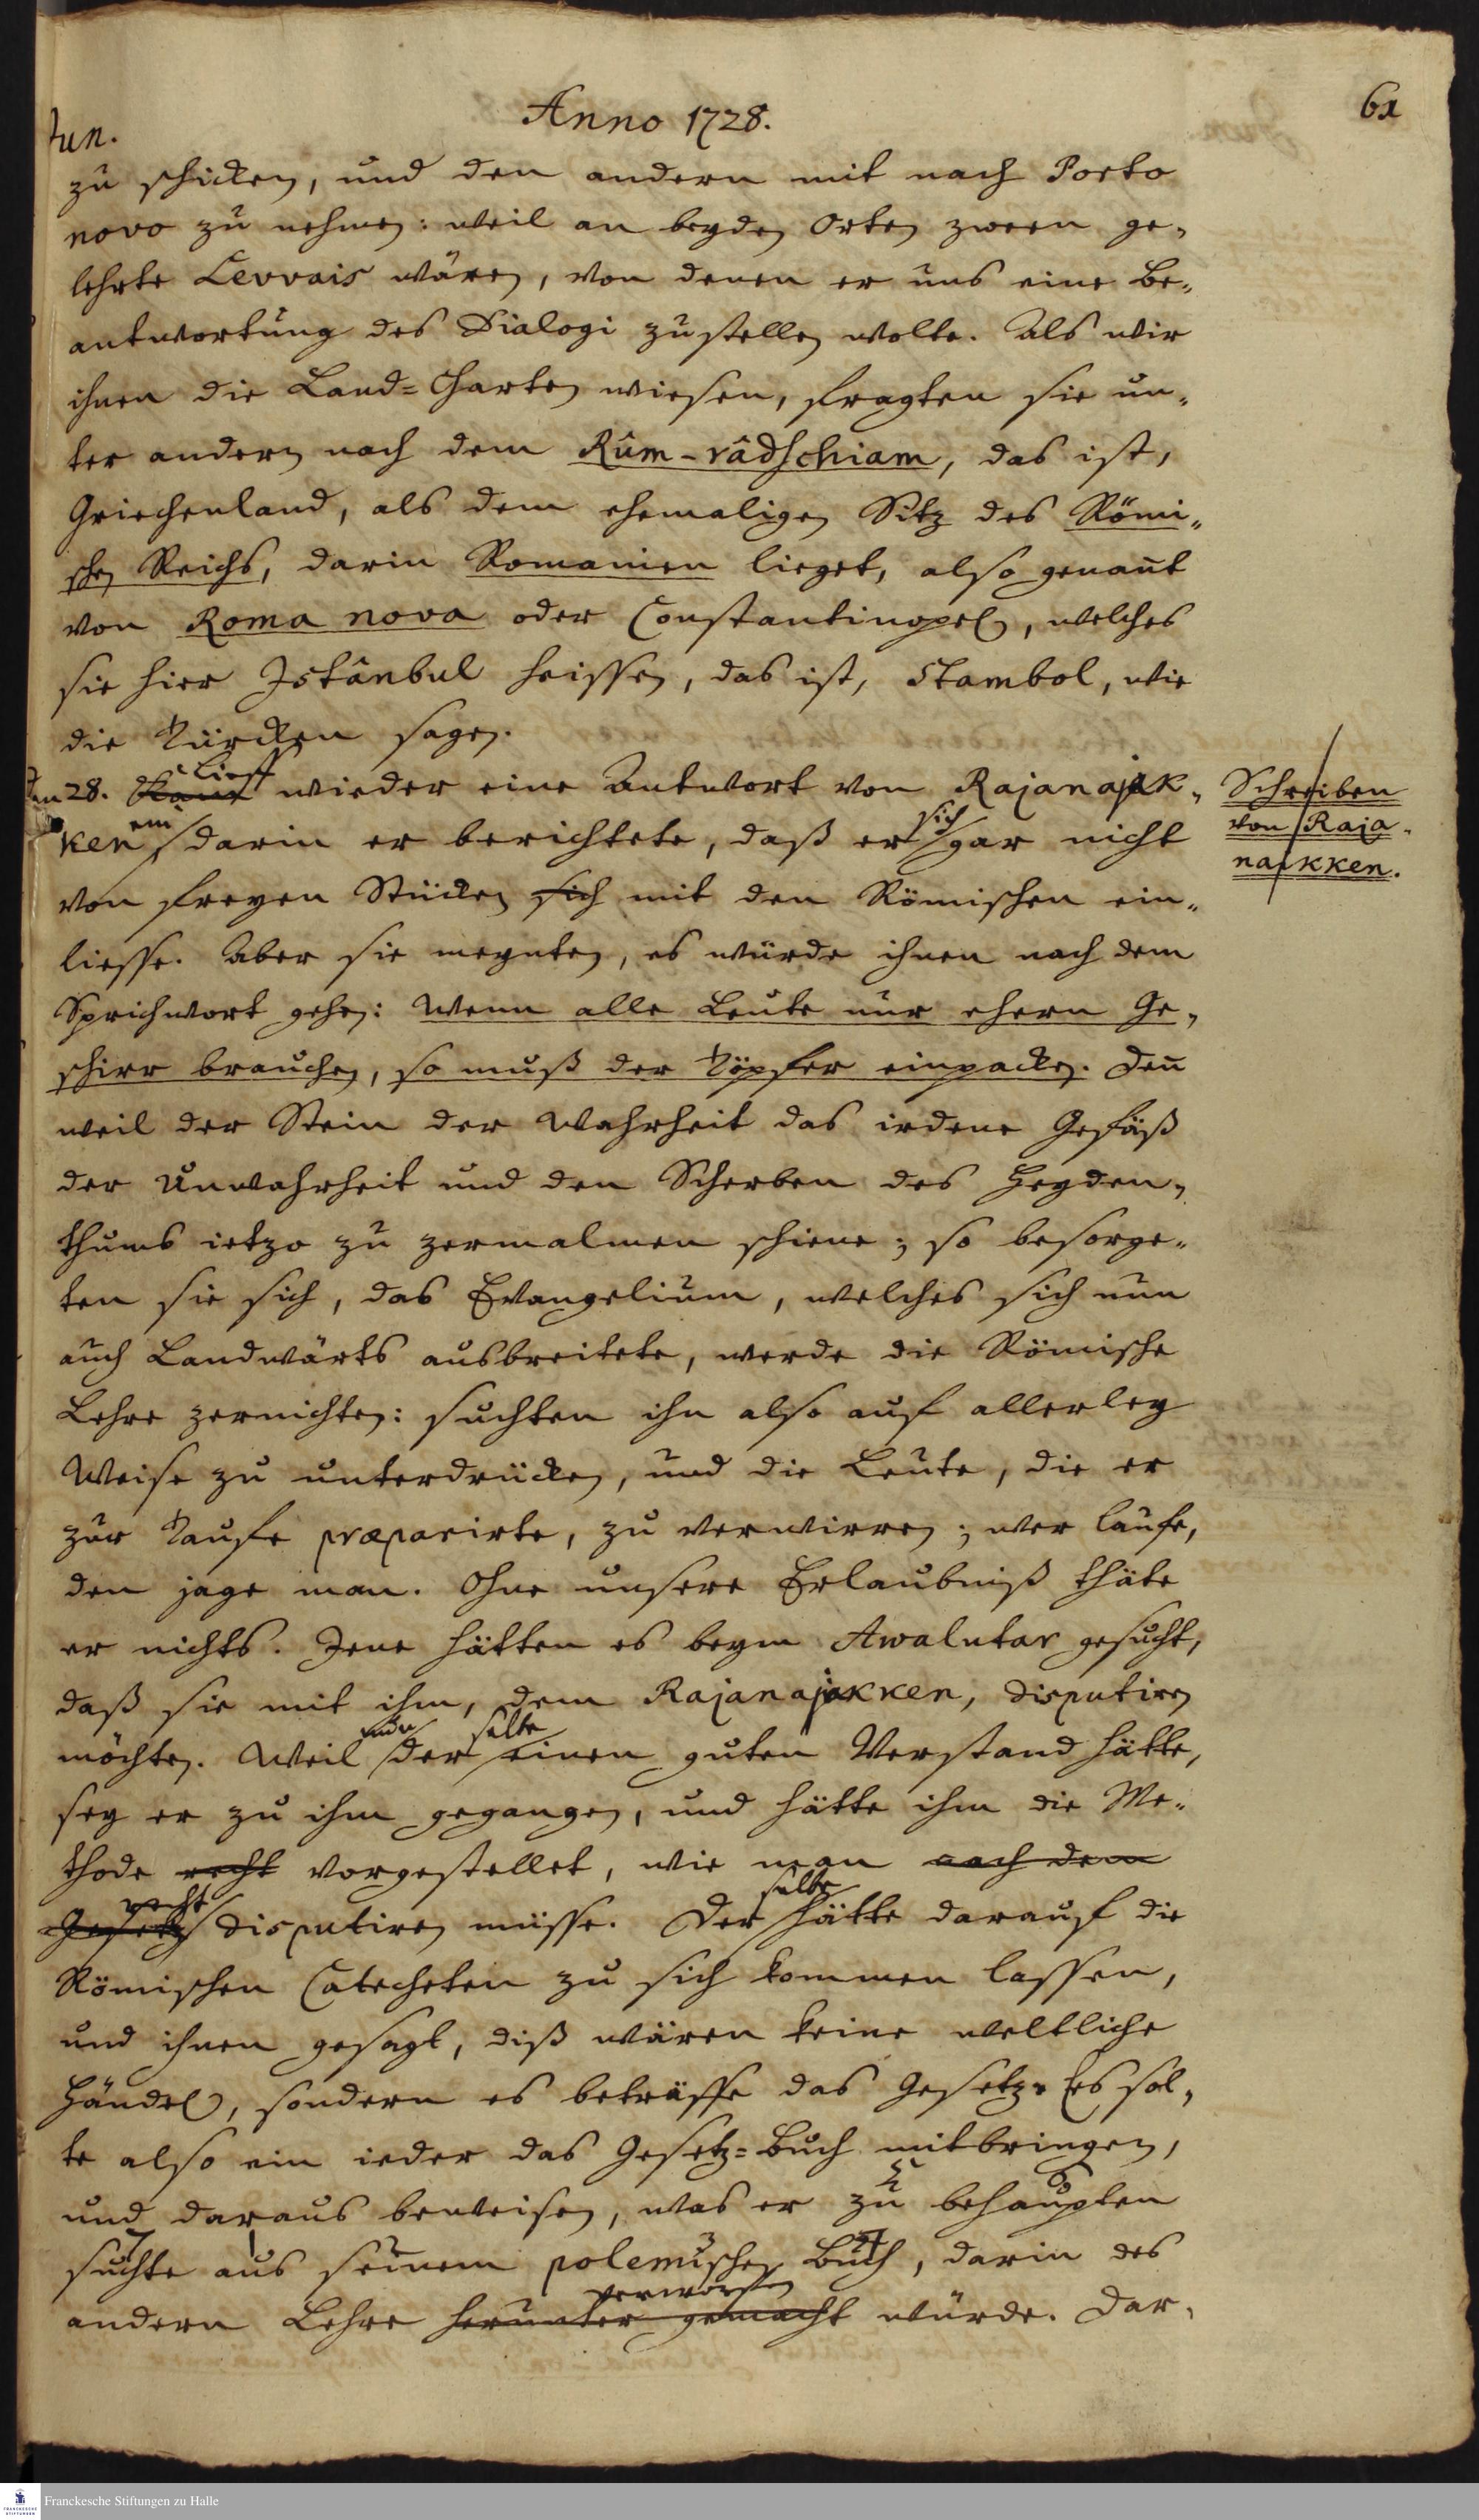 Anno 1728.
61
Jun.
zu schicken, und den andern mit nach Porto
novo zu nehmen: weil an beyden Orten zween ge-
lehrte Levvais wären, von denen er uns eine Be-
antwortung des Dialogi zustellen wolte. Als wir
ihnen die Land-Charten wiesen, fragten sie un-
ter andern nach dem Rûm-râdschiam, das ist,
Griechenland, als dem ehemaligen Sitz des Römi-
schen Reichs, darin Romanien lieget, also genant
von Roma nova oder Constantinopel, welches
sie hier Istânbul heissen, das ist, Stambol, wie
die Türcken sagen.
den 28. Kam lieff wieder eine Antwort von Rajanajak-
ken ein, darin er berichtete, daß er sich gar nicht
von freyen Stücken sich mit den Römischen ein-
liesse. Aber sie meynten, es würde ihnen nach dem
Sprichwort gehen: Wenn alle Leute nur ehern Ge-
schirr brauchen, so muß der Töpfer einpacken. Den
weil der Stein der Wahrheit das irdene Gefäß
der Unwahrheit und den Scherben des Heyden-
thums ietzo zu zermalmen schiene; so besorge-
ten sie sich, das Evangelium, welches sich nun
auch Landwärts ausbreitete, werde die Römische
Lehre zernichten: suchten ihn also auf allerley
Weise zu unterdrücken, und die Leute, die er
zur Taufe præparirte, zu verwirren; wer laufe,
den jage man. Ohne unsere Erlaubniß thäte
er nichts. Jene hätten es beym Awalutar gesucht,
daß sie mit ihm, dem Rajanajakken, disputiren
möchten. Weil nun der selbe einen guten Verstand hätte,
sey er zu ihm gegangen, und hätte ihm die Me-
thode recht vorgestellet, wie man nach dem
Gesetz recht disputiren müsse. Der selbe hätte darauf die
Römischen Catecheten zu sich kommen lassen,
und ihnen gesagt, diß wären keine weltliche
Händel, sondern es beträffe das Gesetz. Es sol-
te also ein ieder das Gesetz-Buch mitbringen,
und daraus beweisen, was er zu behaupten
suchte aus seinem polemischen Buch, darin des
andern Lehre herunter gemacht verworfen würde. Dar-
Schreiben
von Raja-
naikken.
Franckesche Stiftungen zu Halle